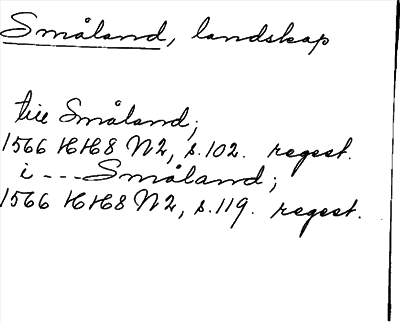 Småland, landskap
till Småland;
1566 HH8 N2, s.102. regest.
i --- Småland;
1566 HH8 N2, s.119. regest.